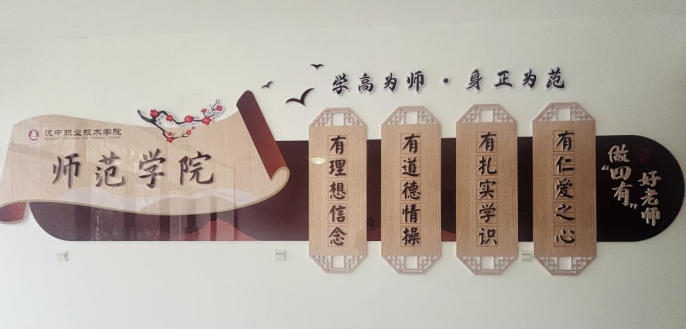 汉中职业技术学院
师范学院
学高为师·身正为范
有理想信念
有道德情操
有扎实学识
有仁爱之心
做"四有"
好老师